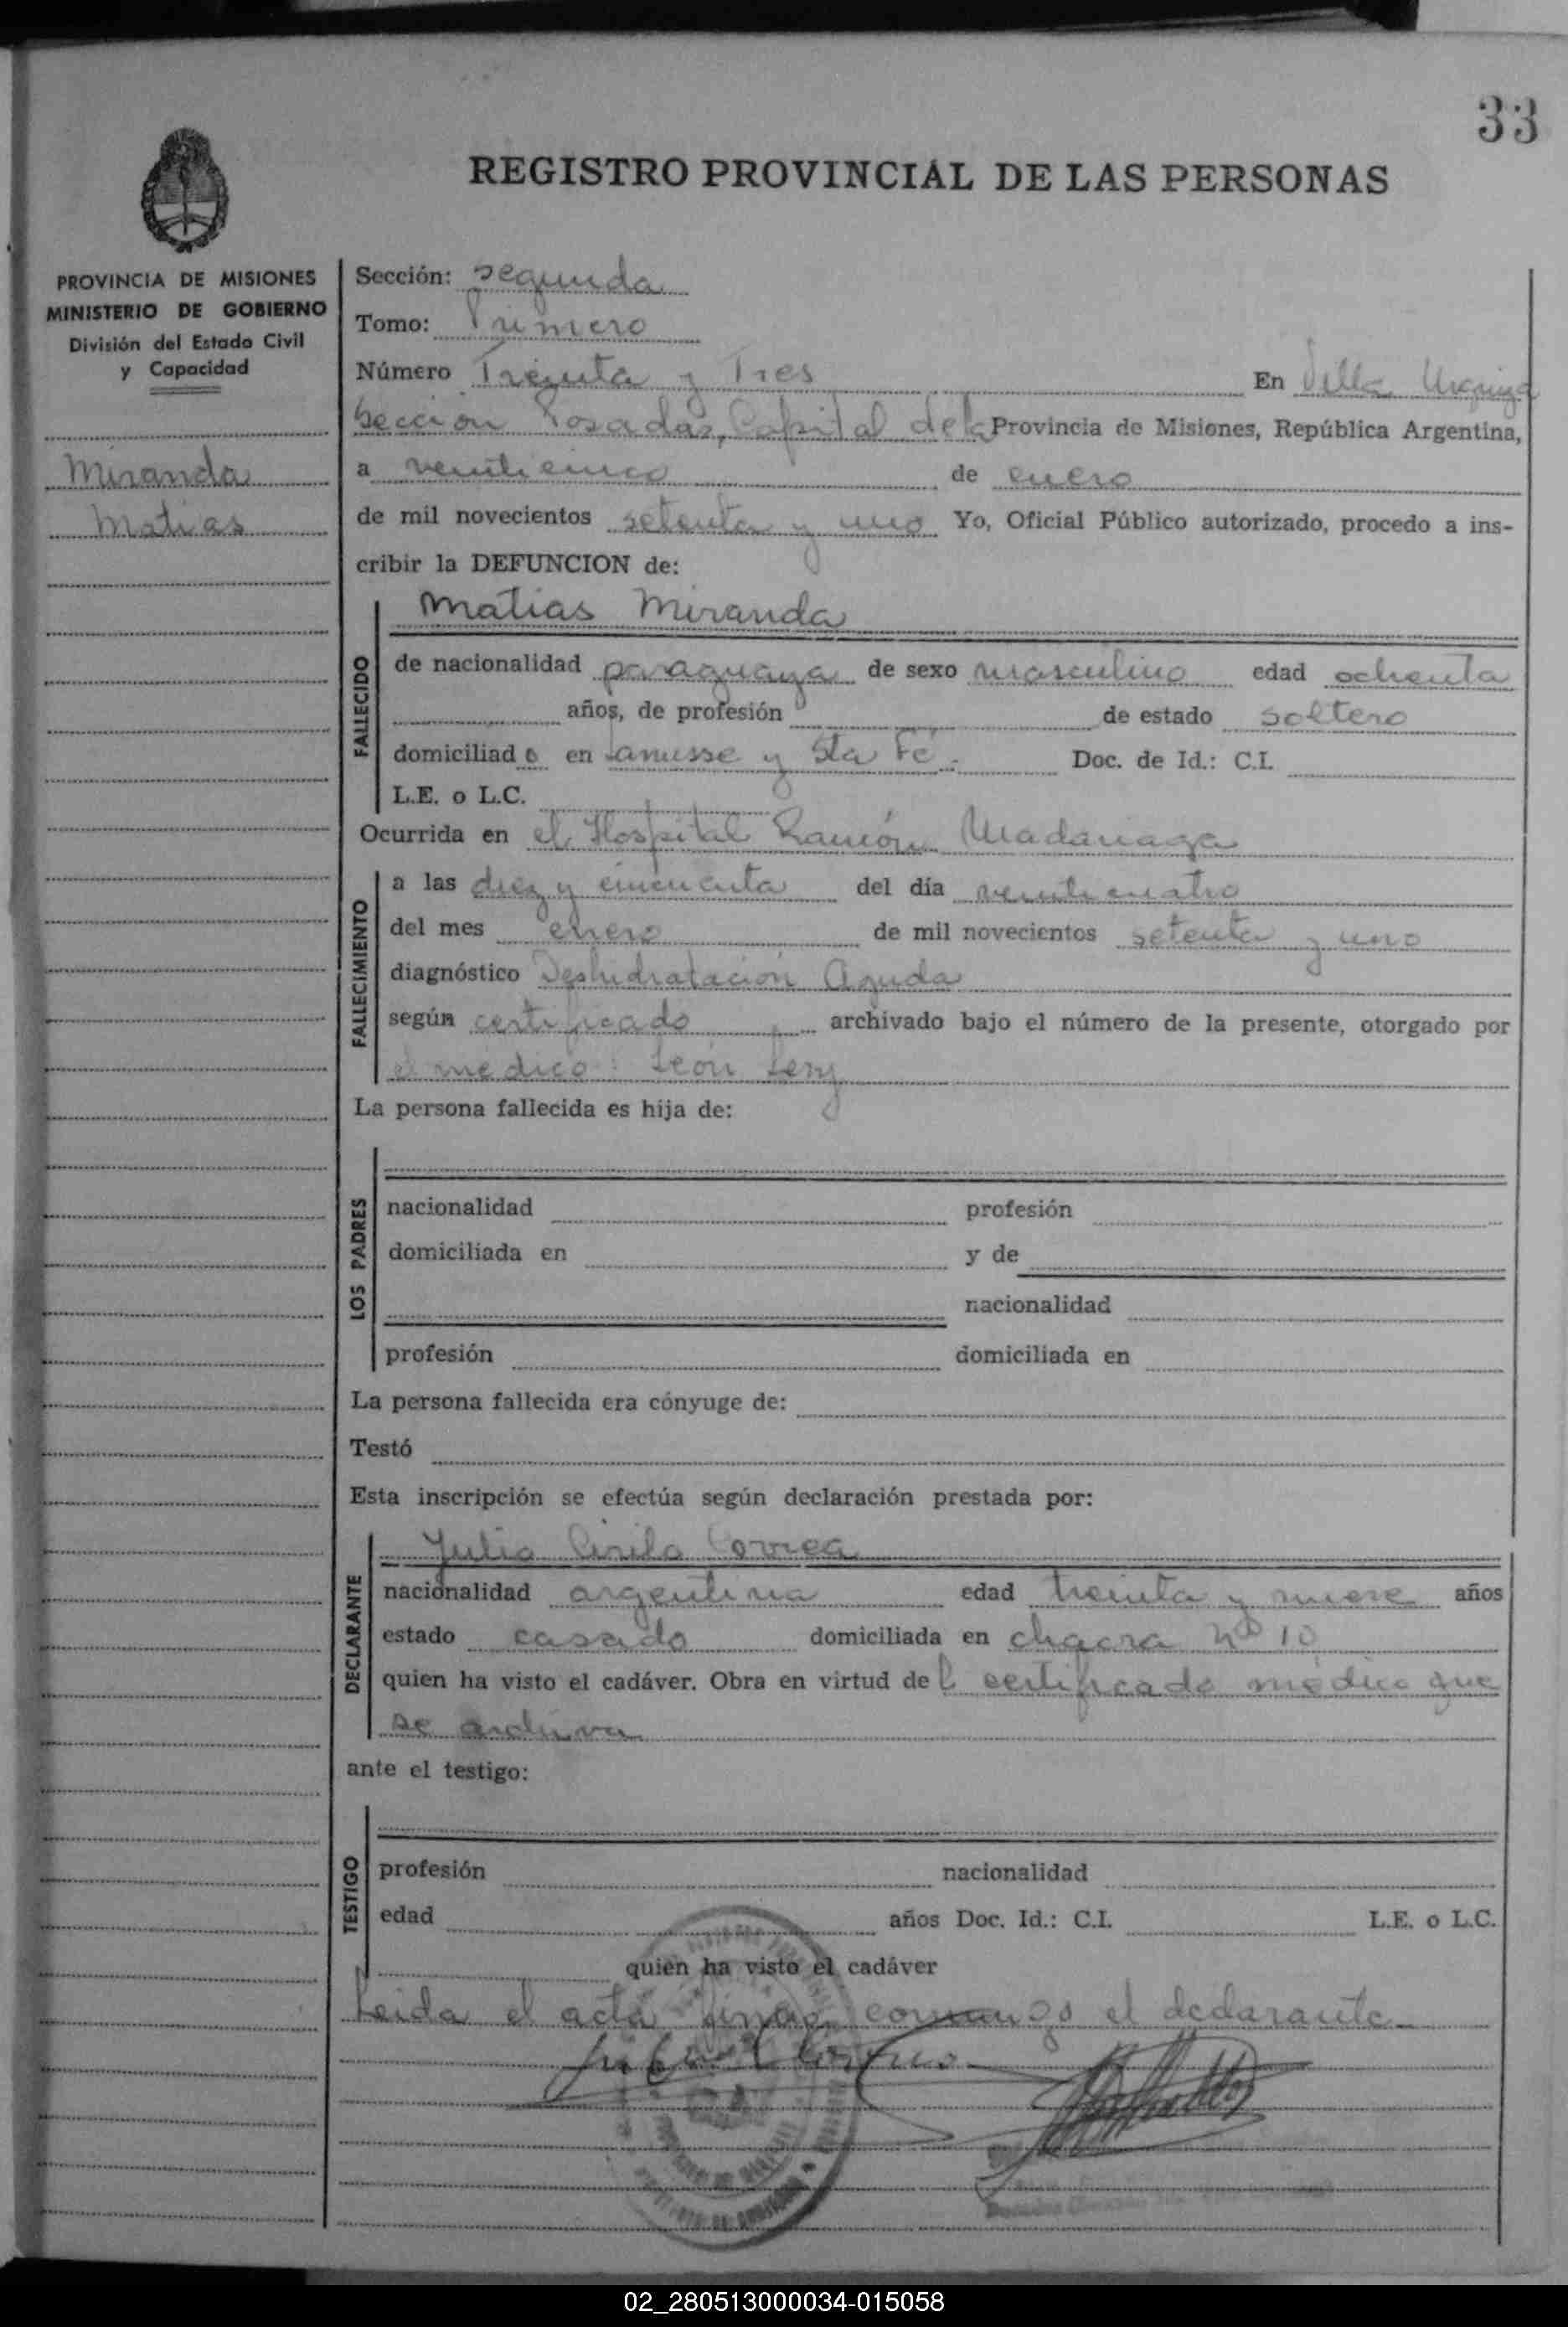 33
REGISTRO PROVINCIAL DE LAS PERSONAS
PROVINCIA DE MISIONES
MINISTERIO DE GOBIERNO
División del Estado Civil
y Capacidad
Miranda
Matias
Sección: segunda
Tomo: Primero
Número Treinta y Tres En Villa Urquiza
Sección Posadas, Capital de la Provincia de Misiones, República Argentina,
a veinticinco de enero
de mil novecientos setenta y uno Yo, Oficial Público autorizado, procedo a ins-
cribir la DEFUNCION de:
FALLECIDO
Matias Miranda
de nacionalidad paraguaya de sexo masculino edad ochenta
años, de profesión de estado soltero
domiciliad o en Lanusse y Sta Fé. Doc. de Id.: C.I.
L.E. o L.C.
Ocurrida en el Hospital Ramón Madariaga
FALLECIMIENTO
a las diez y cincuenta del día veinticuatro
del mes enero de mil novecientos setenta y uno
diagnóstico Deshidratación Aguda
según certificado archivado bajo el número de la presente, otorgado por
el medico: León
La persona fallecida es hija de:
LOS PADRES
nacionalidad profesión
domiciliada en y de
nacionalidad
profesión domiciliada en
La persona fallecida era cónyuge de:
Testó
Esta inscripción se efectúa según declaración prestada por:
DECLARANTE
Julio Cirilo Correa
nacionalidad argentina edad treinta y nueve años
estado casado domiciliada en chacra nº 10
quien ha visto el cadáver. Obra en virtud del certificado médico que
se archiva
ante el testigo:
TESTIGO
profesión nacionalidad
edad años Doc. Id.: C.I. L.E. o L.C.
quien ha visto el cadáver
Leida el acta firma conmigo el declarante
02_280513000034-015058